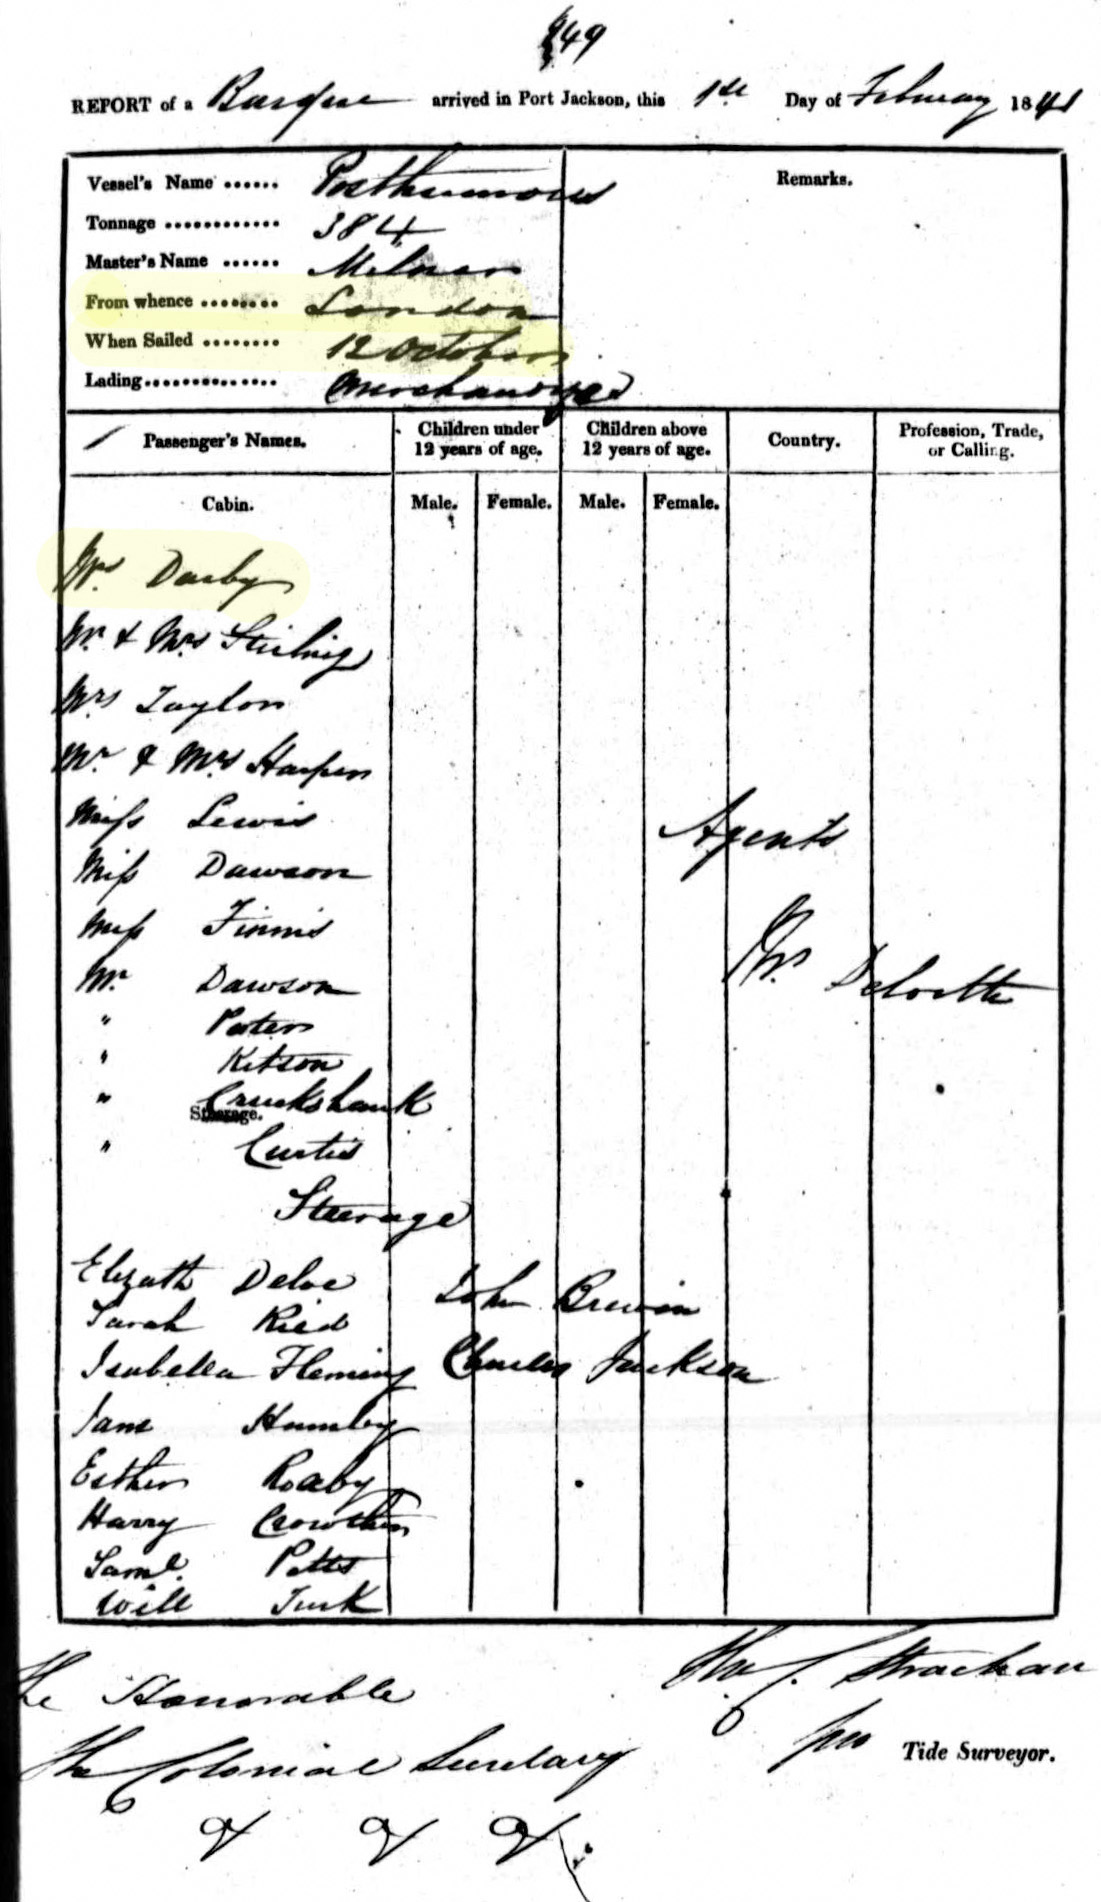 49
REPORT of a Barque arrived in Port Jackson, this 1st Day of February 1841
Vessel's Name ...... Posthumous
Tonnage ............ 384
Master's Name ...... Milner
From whence ........ London
When Sailed ........ 12 October
Lading.............. Merchandize
Remarks.
Passenger's Names.
Children under 12 years of age.
Children above 12 years of age.
Country.
Profession, Trade, or Calling.
Cabin.
Male. Female. Male. Female.
Darby
Mr & Mrs Stirling
Mrs Taylor
Mr & Mrs Harper
Miss Lewis
Agents
Miss Dawson
Miss Finnis
Mr Deloitte
Mr Dawson
" Peter
" Kitson
" Cruckshank
Steerage.
" Curtis
Steerage
Elizath Deloe
John Brewin
Sarah Ried
Isabella Fleming
Charles Jackson
Jane Hamley
Esther
Harry Crowther
Saml. Potts
Will Turk
The Honorable
The Colonial Secretary
Strachan
pro Tide Surveyor.